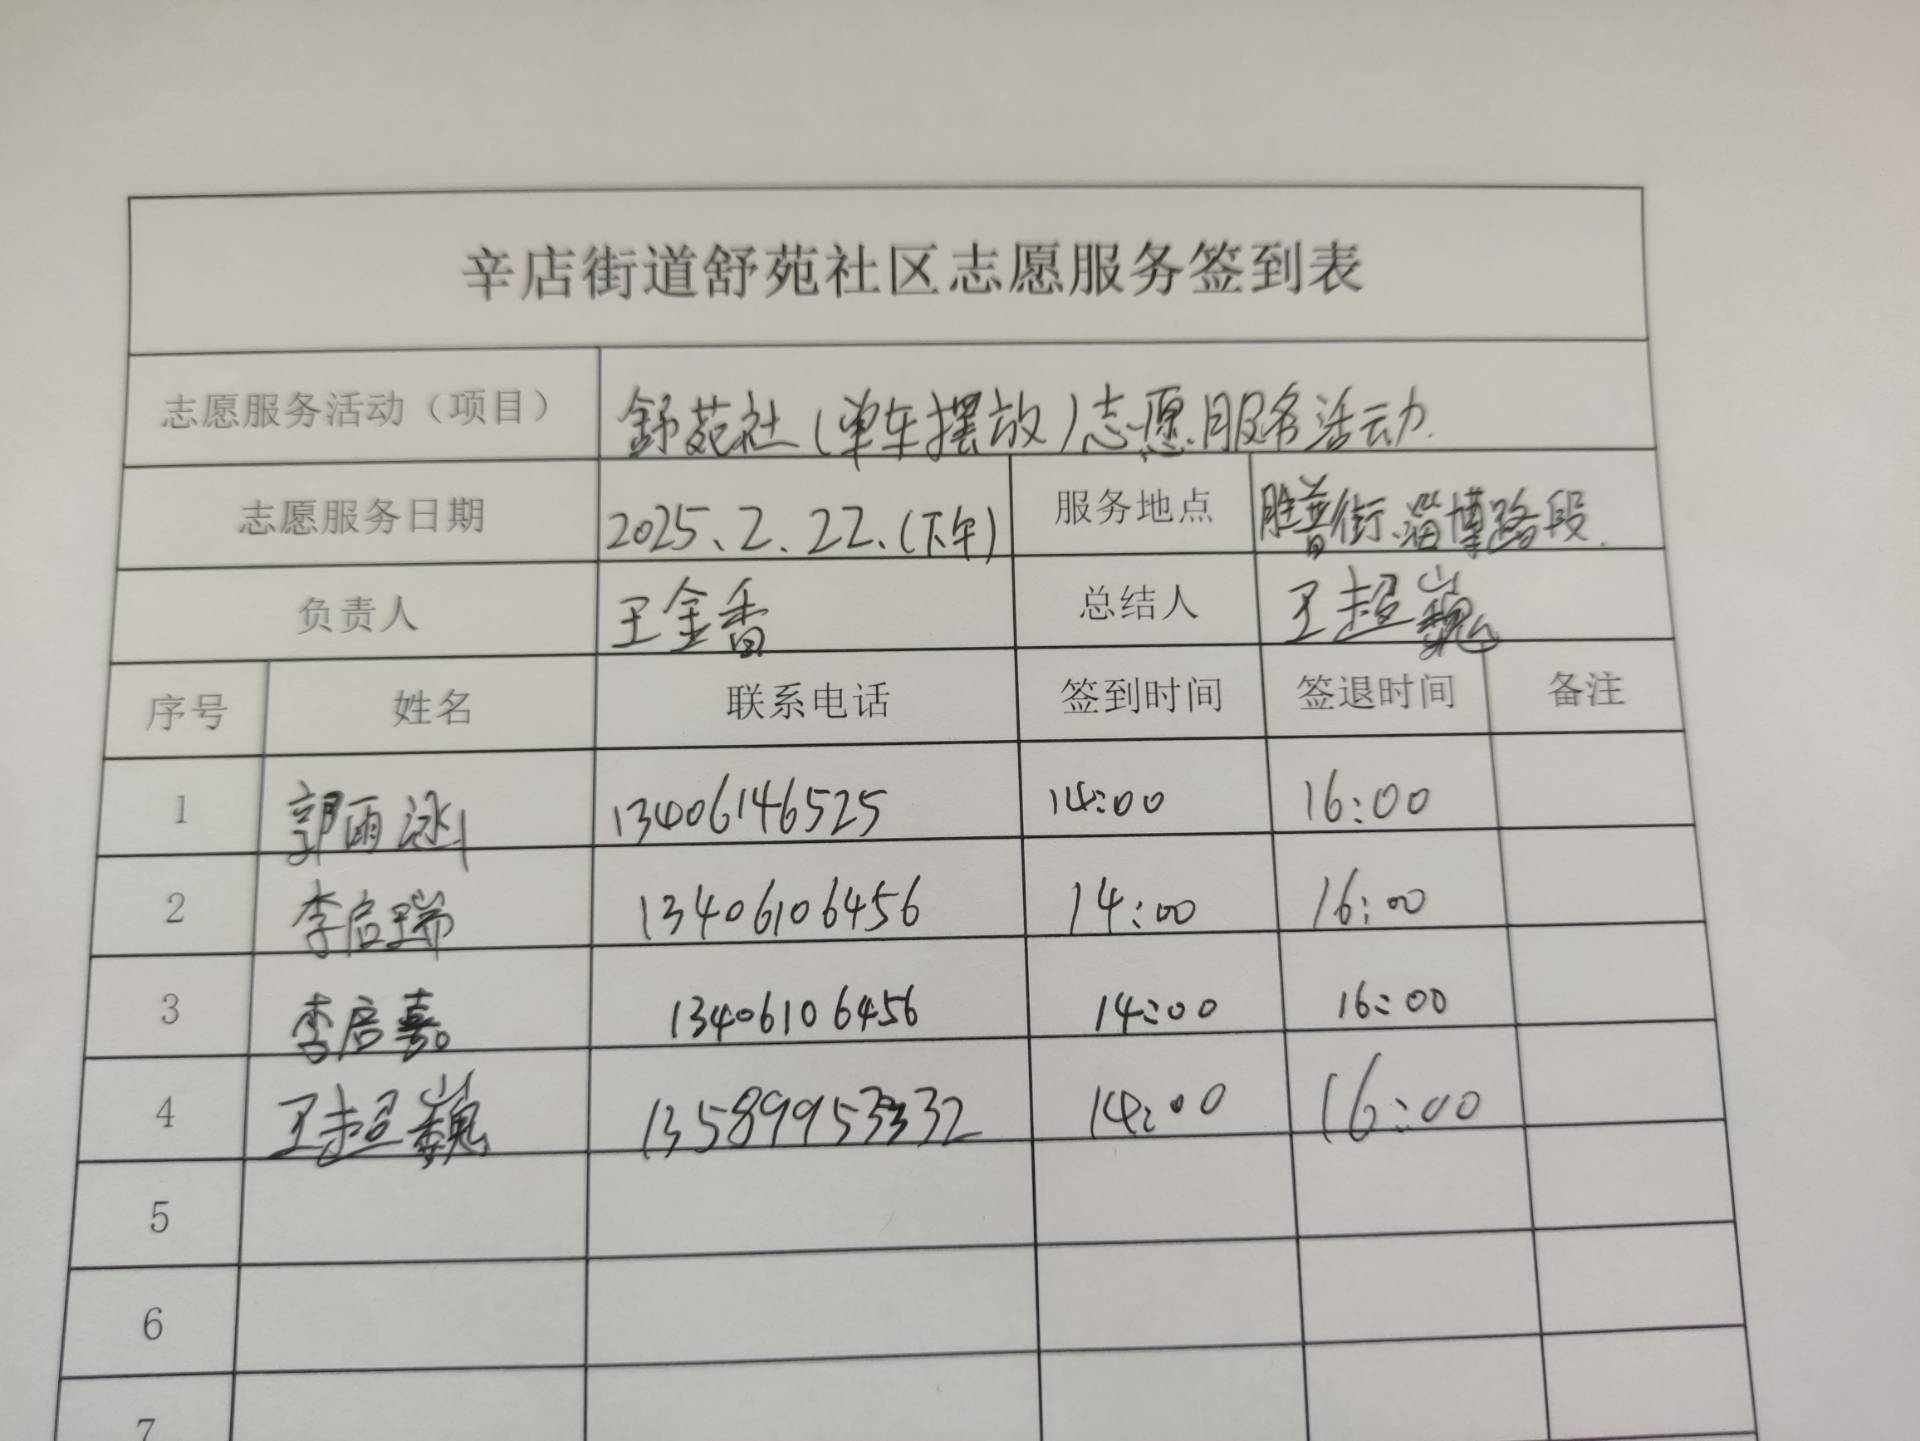 辛店街道舒苑社区志愿服务签到表
志愿服务活动（项目） 舒苑社（单车摆放）志愿服务活动.
志愿服务日期 2025、2、22、（下午） 服务地点 胜普街、淄博路段.
负责人 王金香 总结人 王超巍
序号 姓名 联系电话 签到时间 签退时间 备注
1 郭雨 13406146525 14:00 16:00
2 李启瑞 13406106456 14:00 16:00
3 李启嘉 13406106456 14:00 16:00
4 王超巍 13589953332 14:00 16:00
5
6
7